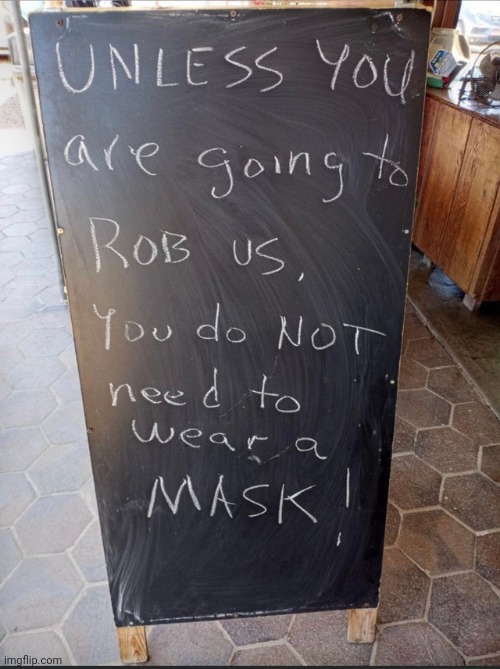 UNLESS YOU
are going to
ROB US,
You do NOT
need to
wear a
MASK!
imgflip.com